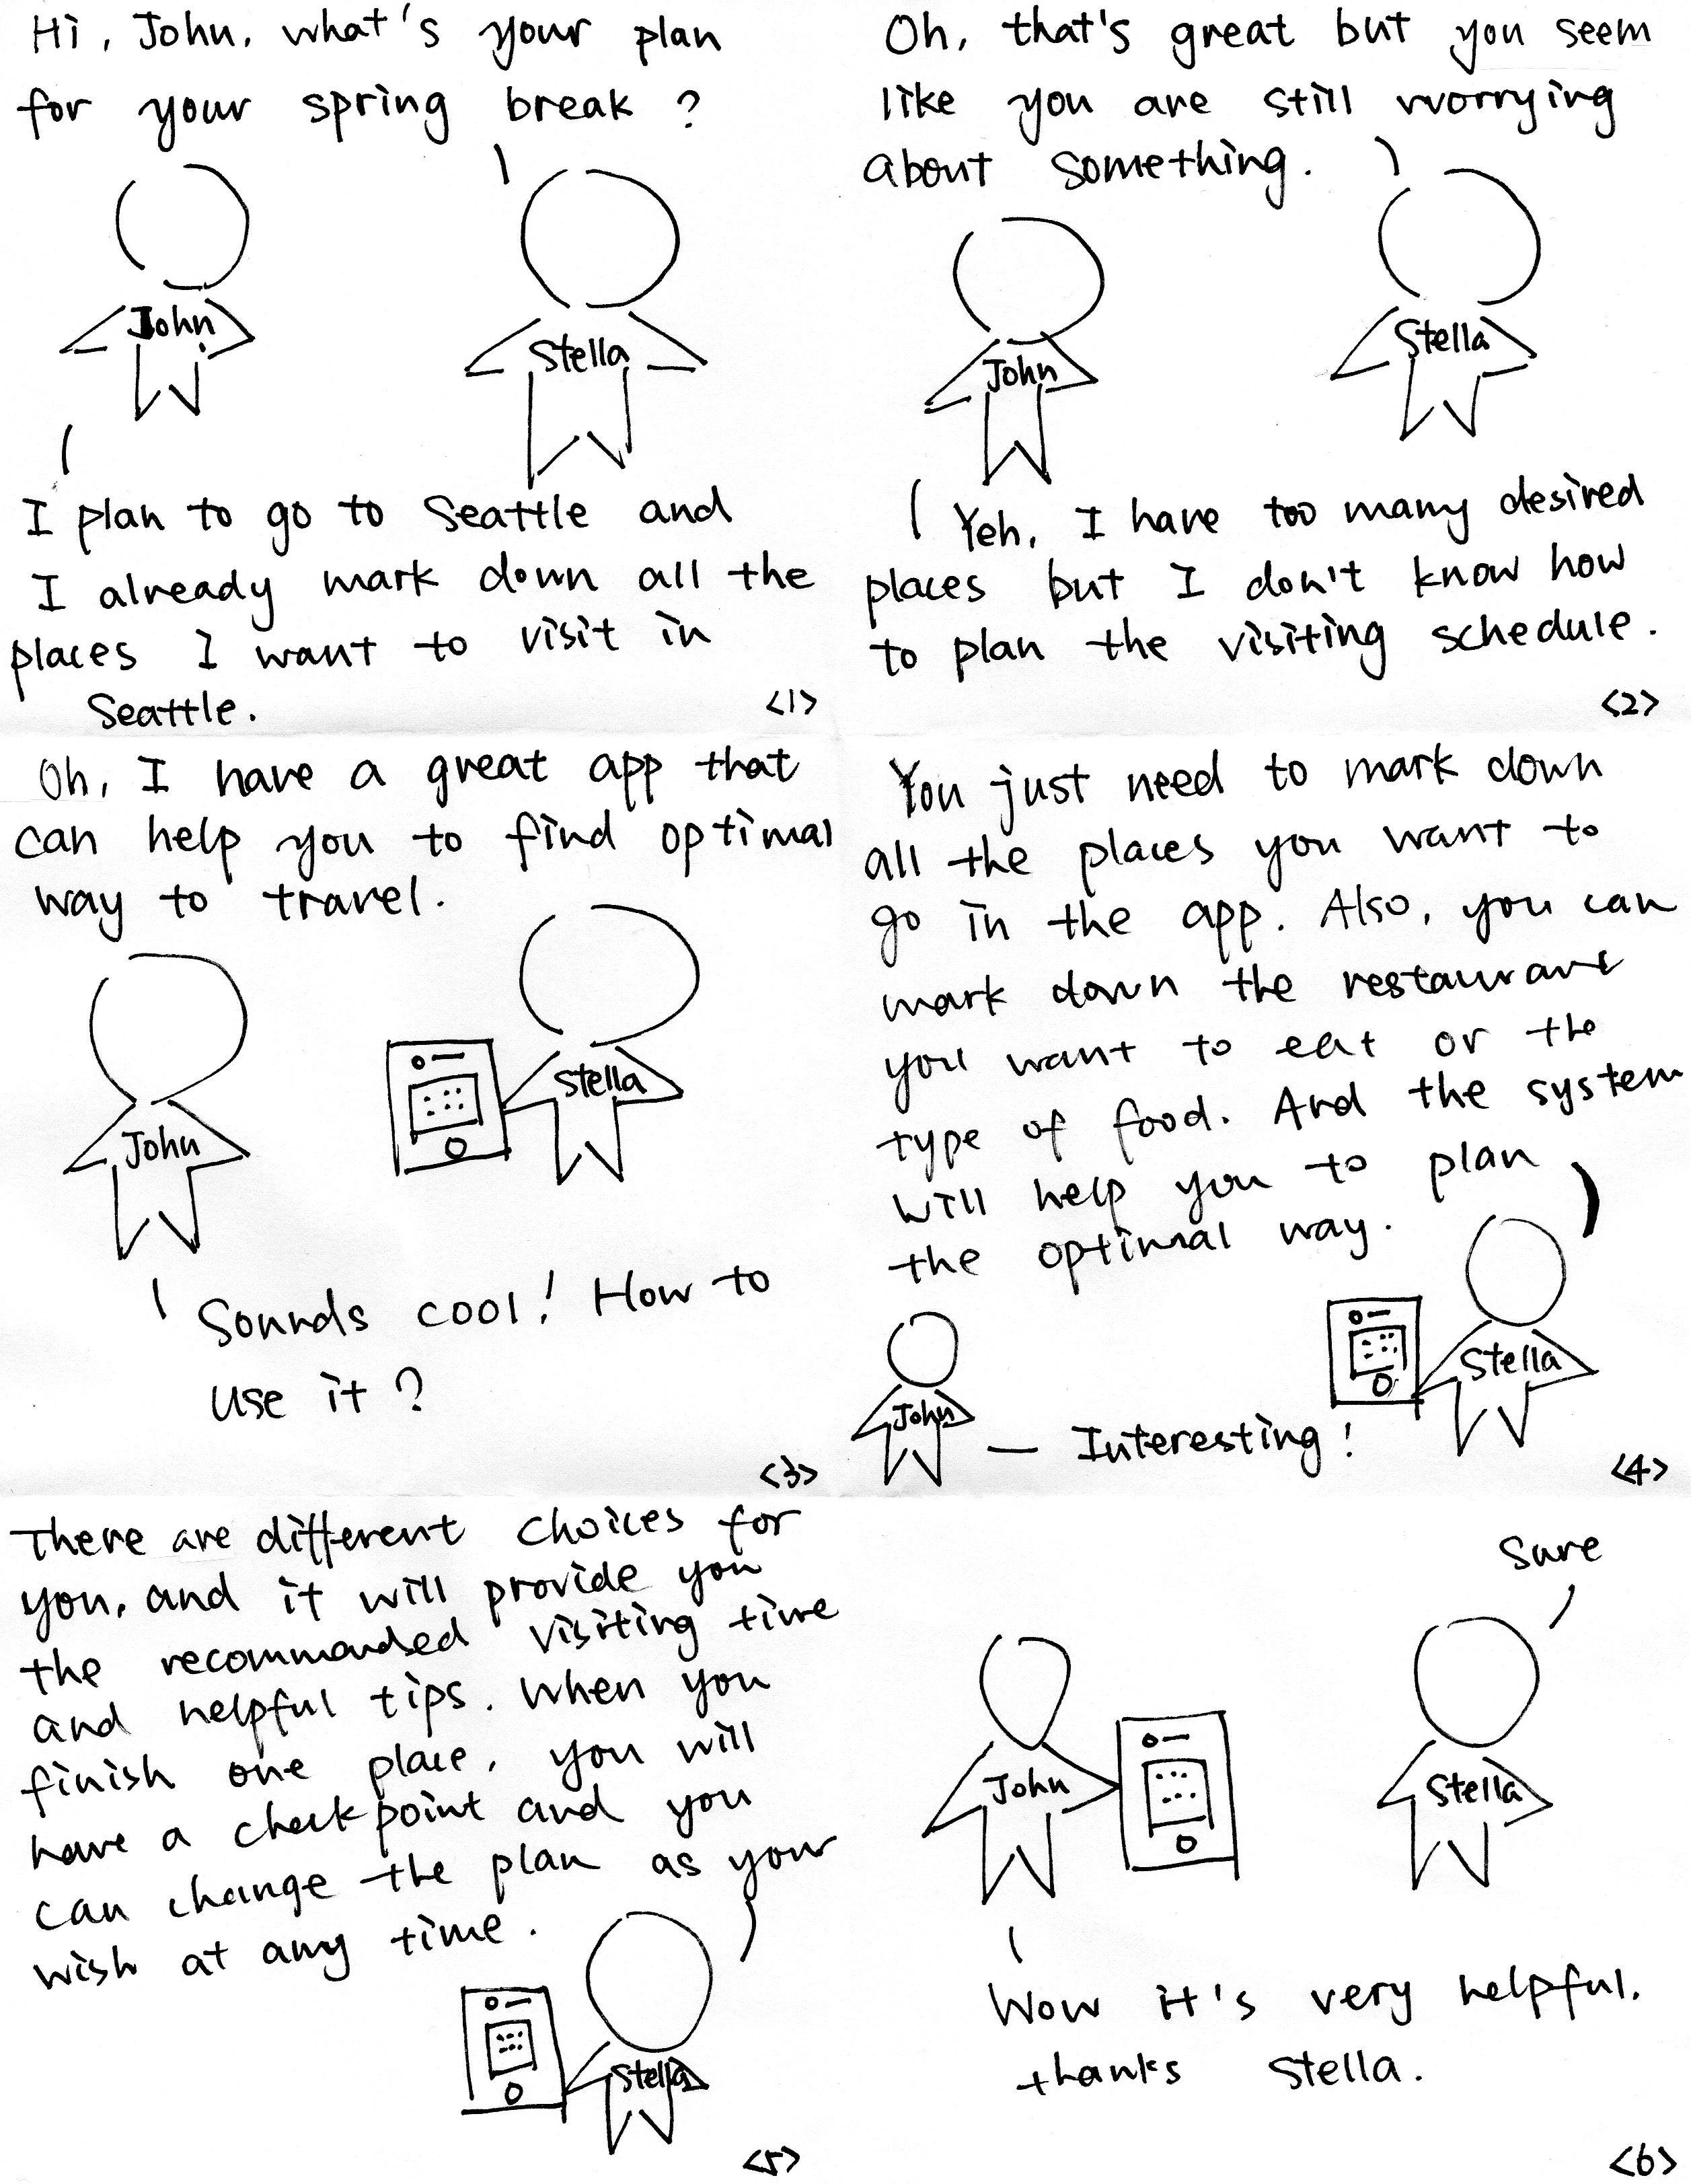 Hi, John, what's your plan
for your spring break ?
John
Stella
I plan to go to Seattle and
I already mark down all the
places I want to visit in
Seattle.
<1>
Oh, that's great but you seem
like you are still worrying
about something.
John
Stella
Yeh, I have too many desired
places but I don't know how
to plan the visiting schedule.
<2>
Oh, I have a great app that
can help you to find optimal
way to travel.
John
Stella
Sounds cool! How to
use it ?
<3>
You just need to mark down
all the places you want to
go in the app. Also, you can
mark down the restaurant
you want to eat or the
type of food. And the system
will help you to plan
the optimal way.
Stella
John
Interesting!
<4>
There are different choices for
you, and it will provide you
the recommanded visiting time
and helpful tips. When you
finish one place, you will
have a check point and you
can change the plan as your
wish at any time.
Stella
<5>
Sure
John
Stella
Wow it's very helpful.
thanks Stella.
<6>